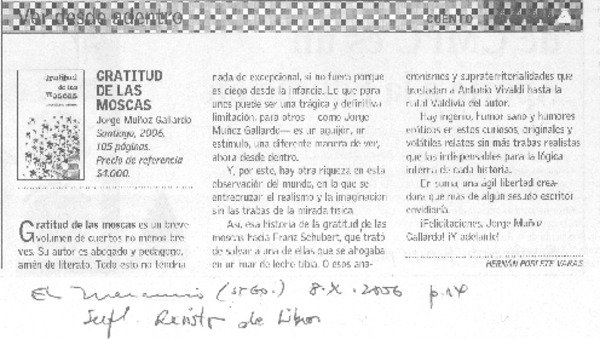 Ver desde adentro
CUENTO
Gratitud
de las
Moscas
GRATITUD
DE LAS
MOSCAS
Jorge Muñoz Gallardo
Santiago, 2006.
105 páginas.
Precio de referencia
$4.000.
Gratitud de las moscas es un breve
volumen de cuentos no menos bre-
ves. Su autor es abogado y pedagogo,
amén de literato. Todo esto no tendría
nada de excepcional, si no fuera porque
es ciego desde la infancia. Lo que para
unos puede ser una trágica y definitiva
limitación, para otros —como Jorge
Muñoz Gallardo— es un aguijón, un
estímulo, una diferente manera de ver,
ahora desde dentro.
Y, por este, hay otra riqueza en esta
observación del mundo, en la que se
entrecruzan el realismo y la imaginación
sin las trabas de la mirada física.
Así, esa historia de la gratitud de las
moscas hacia Franz Schubert, que trató
de salvar a una de ellas que se ahogaba
en un mar de leche tibia. O esos ana-
cronismos y supraterritorialidades que
trasladan a Antonio Vivaldi hasta la
natal Valdivia del autor.
Hay ingenio, humor sano y humores
eróticos en estos curiosos, originales y
volátiles relatos sin más trabas realistas
que las indispensables para la lógica
interna de cada historia.
En suma, una ágil libertad crea-
dora que más de algún sesudo escritor
envidiaría.
¡Felicitaciones, Jorge Muñoz
Gallardo! ¡Y adelante!
HERNÁN POBLETE VARAS
El Mercurio (Stgo.) 8.X.2006 p.14
Supl. Revista de Libros